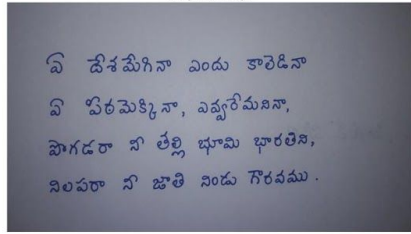 ఏ దేశమేగినా ఎందు కాలెడినా
ఏ పీఠమెక్కినా, ఎవ్వరేమనినా,
పొగడరా నీ తల్లి భూమి భారతిని,
నిలపరా నీ జాతి నిండు గౌరవము.